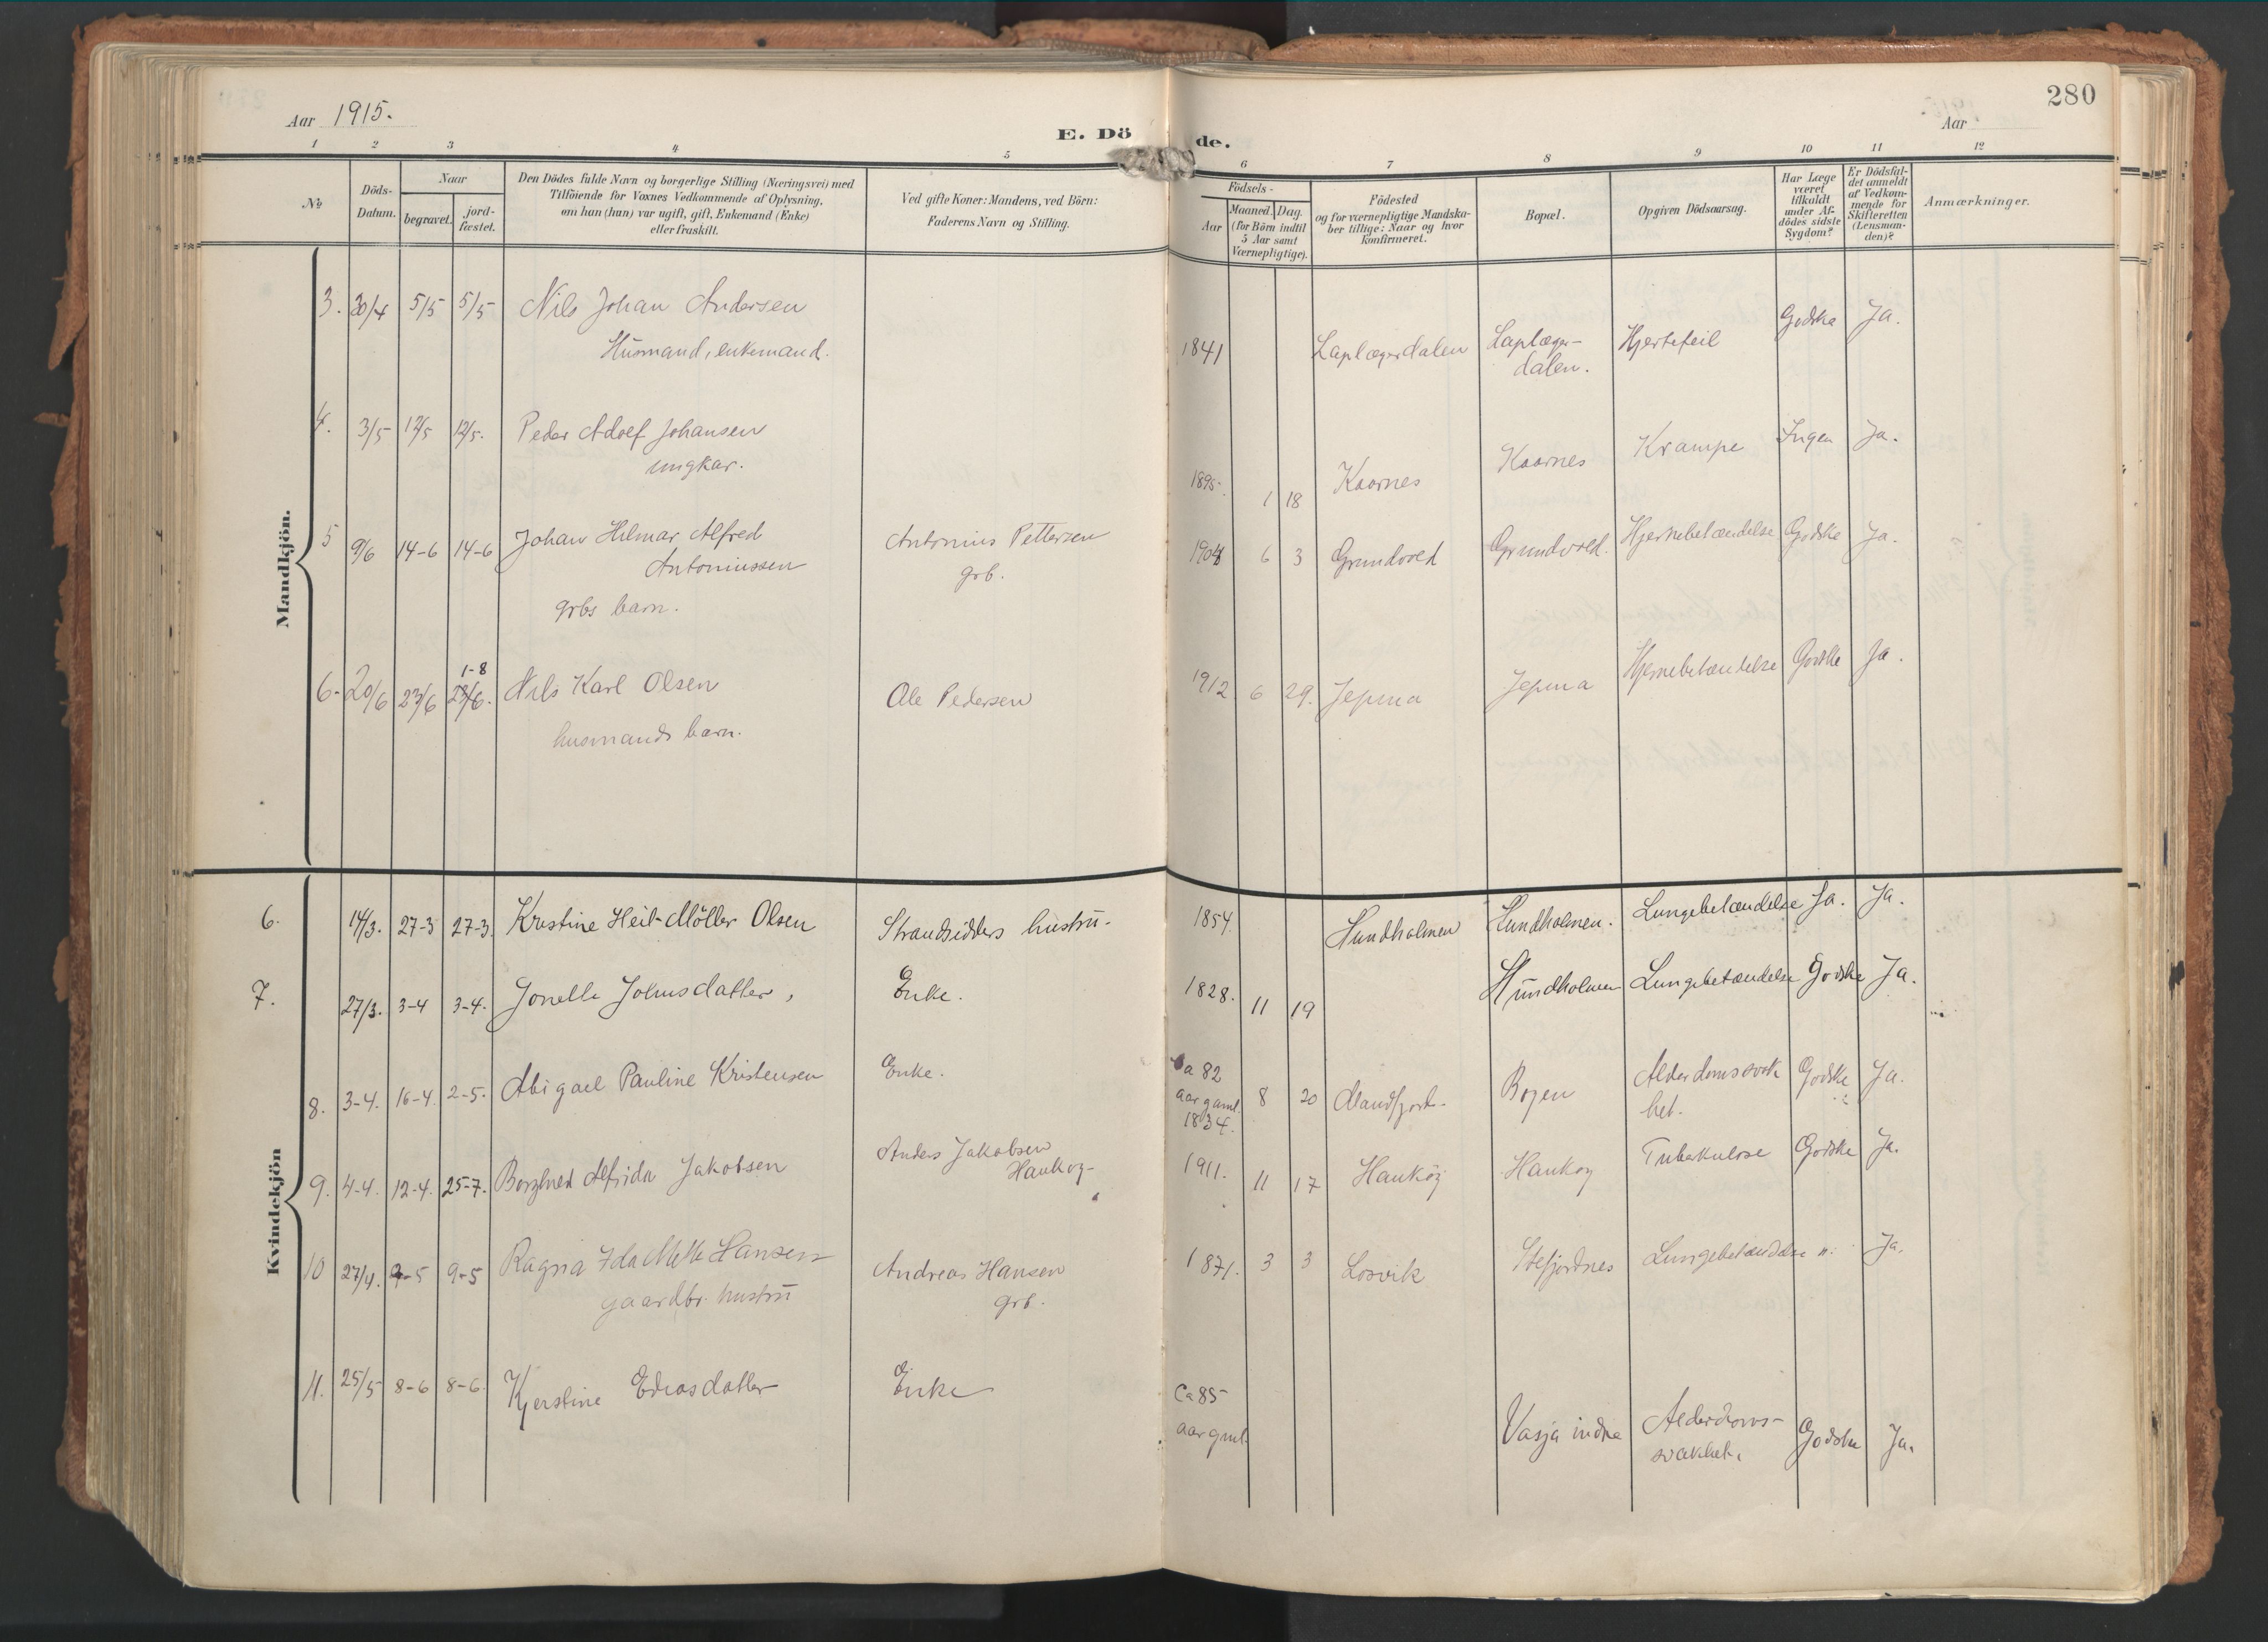 280
Aar 1915.
E. Dö
de.
Aar
1 2 3 4 5 6 7 8 9 10 11 12
No
Döds-
Datum.
Naar
begravet.
jord-
fæstet.
Den Dödes fulde Navn og borgerlige Stilling (Næringsvei) med
Tilföiende for Voxnes Vedkommende af Oplysning,
om han (hun) var ugift, gift, Enkemand (Enke)
eller fraskilt.
Ved gifte Koner: Mandens, ved Börn:
Faderens Navn og Stilling.
Födsels-
Aar
Maaned.
Dag.
(for Börn indtil
5 Aar samt
Værnepligtige).
Födested
og for værnepligtige Mandska-
ber tillige: Naar og hvor
konfirmeret.
Bopæl.
Opgiven Dödsaarsag.
Har Læge
været
tilkaldt
under Af-
dödes sidste
Sygdom?
Er Dödsfal-
det anmeldt
af Vedkom-
mende for
Skifteretten
(Lensman-
den)?
Anmærkninger.
Mandkjön.
3. 30/4 5/5 5/5 Nils Johan Andersen
Husmand, enkemand.
1841 Laplægerdalen Laplæger-
dalen.
Hjertefeil Godske Ja.
4. 3/5 12/5 12/5. Peder Adolf Johansen
ungkar.
1895. 1 18 Kaarnes Kaarnes Krampe Ingen Ja.
5 9/6 14-6 14-6 Johan Hilmar Alfred
Antoniussen
grbs barn.
Antonius Pettersen
grb.
1908 6 3 Grundvold Grundvold. Hjernebetændelse Godske Ja.
1-8
6. 20/6 23/6 23/6. Nils Karl Olsen
husmands barn.
Ole Pedersen
1912 6 29. Jepma Jepma Hjernebetændelse Godske Ja.
Kvindekjön
6. 14/3. 27-3 27-3. Kristine Heil-Möller Olsen Strandsidders hustru.
1854. Hundholmen Hundholmen. Lungebetændelse Ja. Ja.
7. 27/3. 3-4 3-4. Jonelle Johnsdatter, Enke.
1828. 11 19 Hundholmen Lungebetændelse Godske Ja.
8. 3-4. 16-4. 2-5. Abigael Pauline Kristensen Enke.
Ca 82
aar gaml.
1834.
8 20 Mandfjord. Bogen Alderdomssvak
het.
Godske Ja.
9. 4-4. 12-4. 25-7. Borghild Alfrida Jakobsen Anders Jakobsen
Haukøy
1911. 11 17 Hauköy Haukoy Tuberkulose Godske Ja.
10 27/4. 9-5 9-5 Ragna Ida Mette Hansen
gaardbr. hustru
Andreas Hansen
grb.
1871. 3 3 Losvik Stefjordnes Lungebetændelse ". Ja.
11. 25/5 8-6 8-6. Kjerstine Ediasdatter Enke
Ca 85
aar gml.
Vasja indre Alderdoms-
svakhet. Godske Ja.